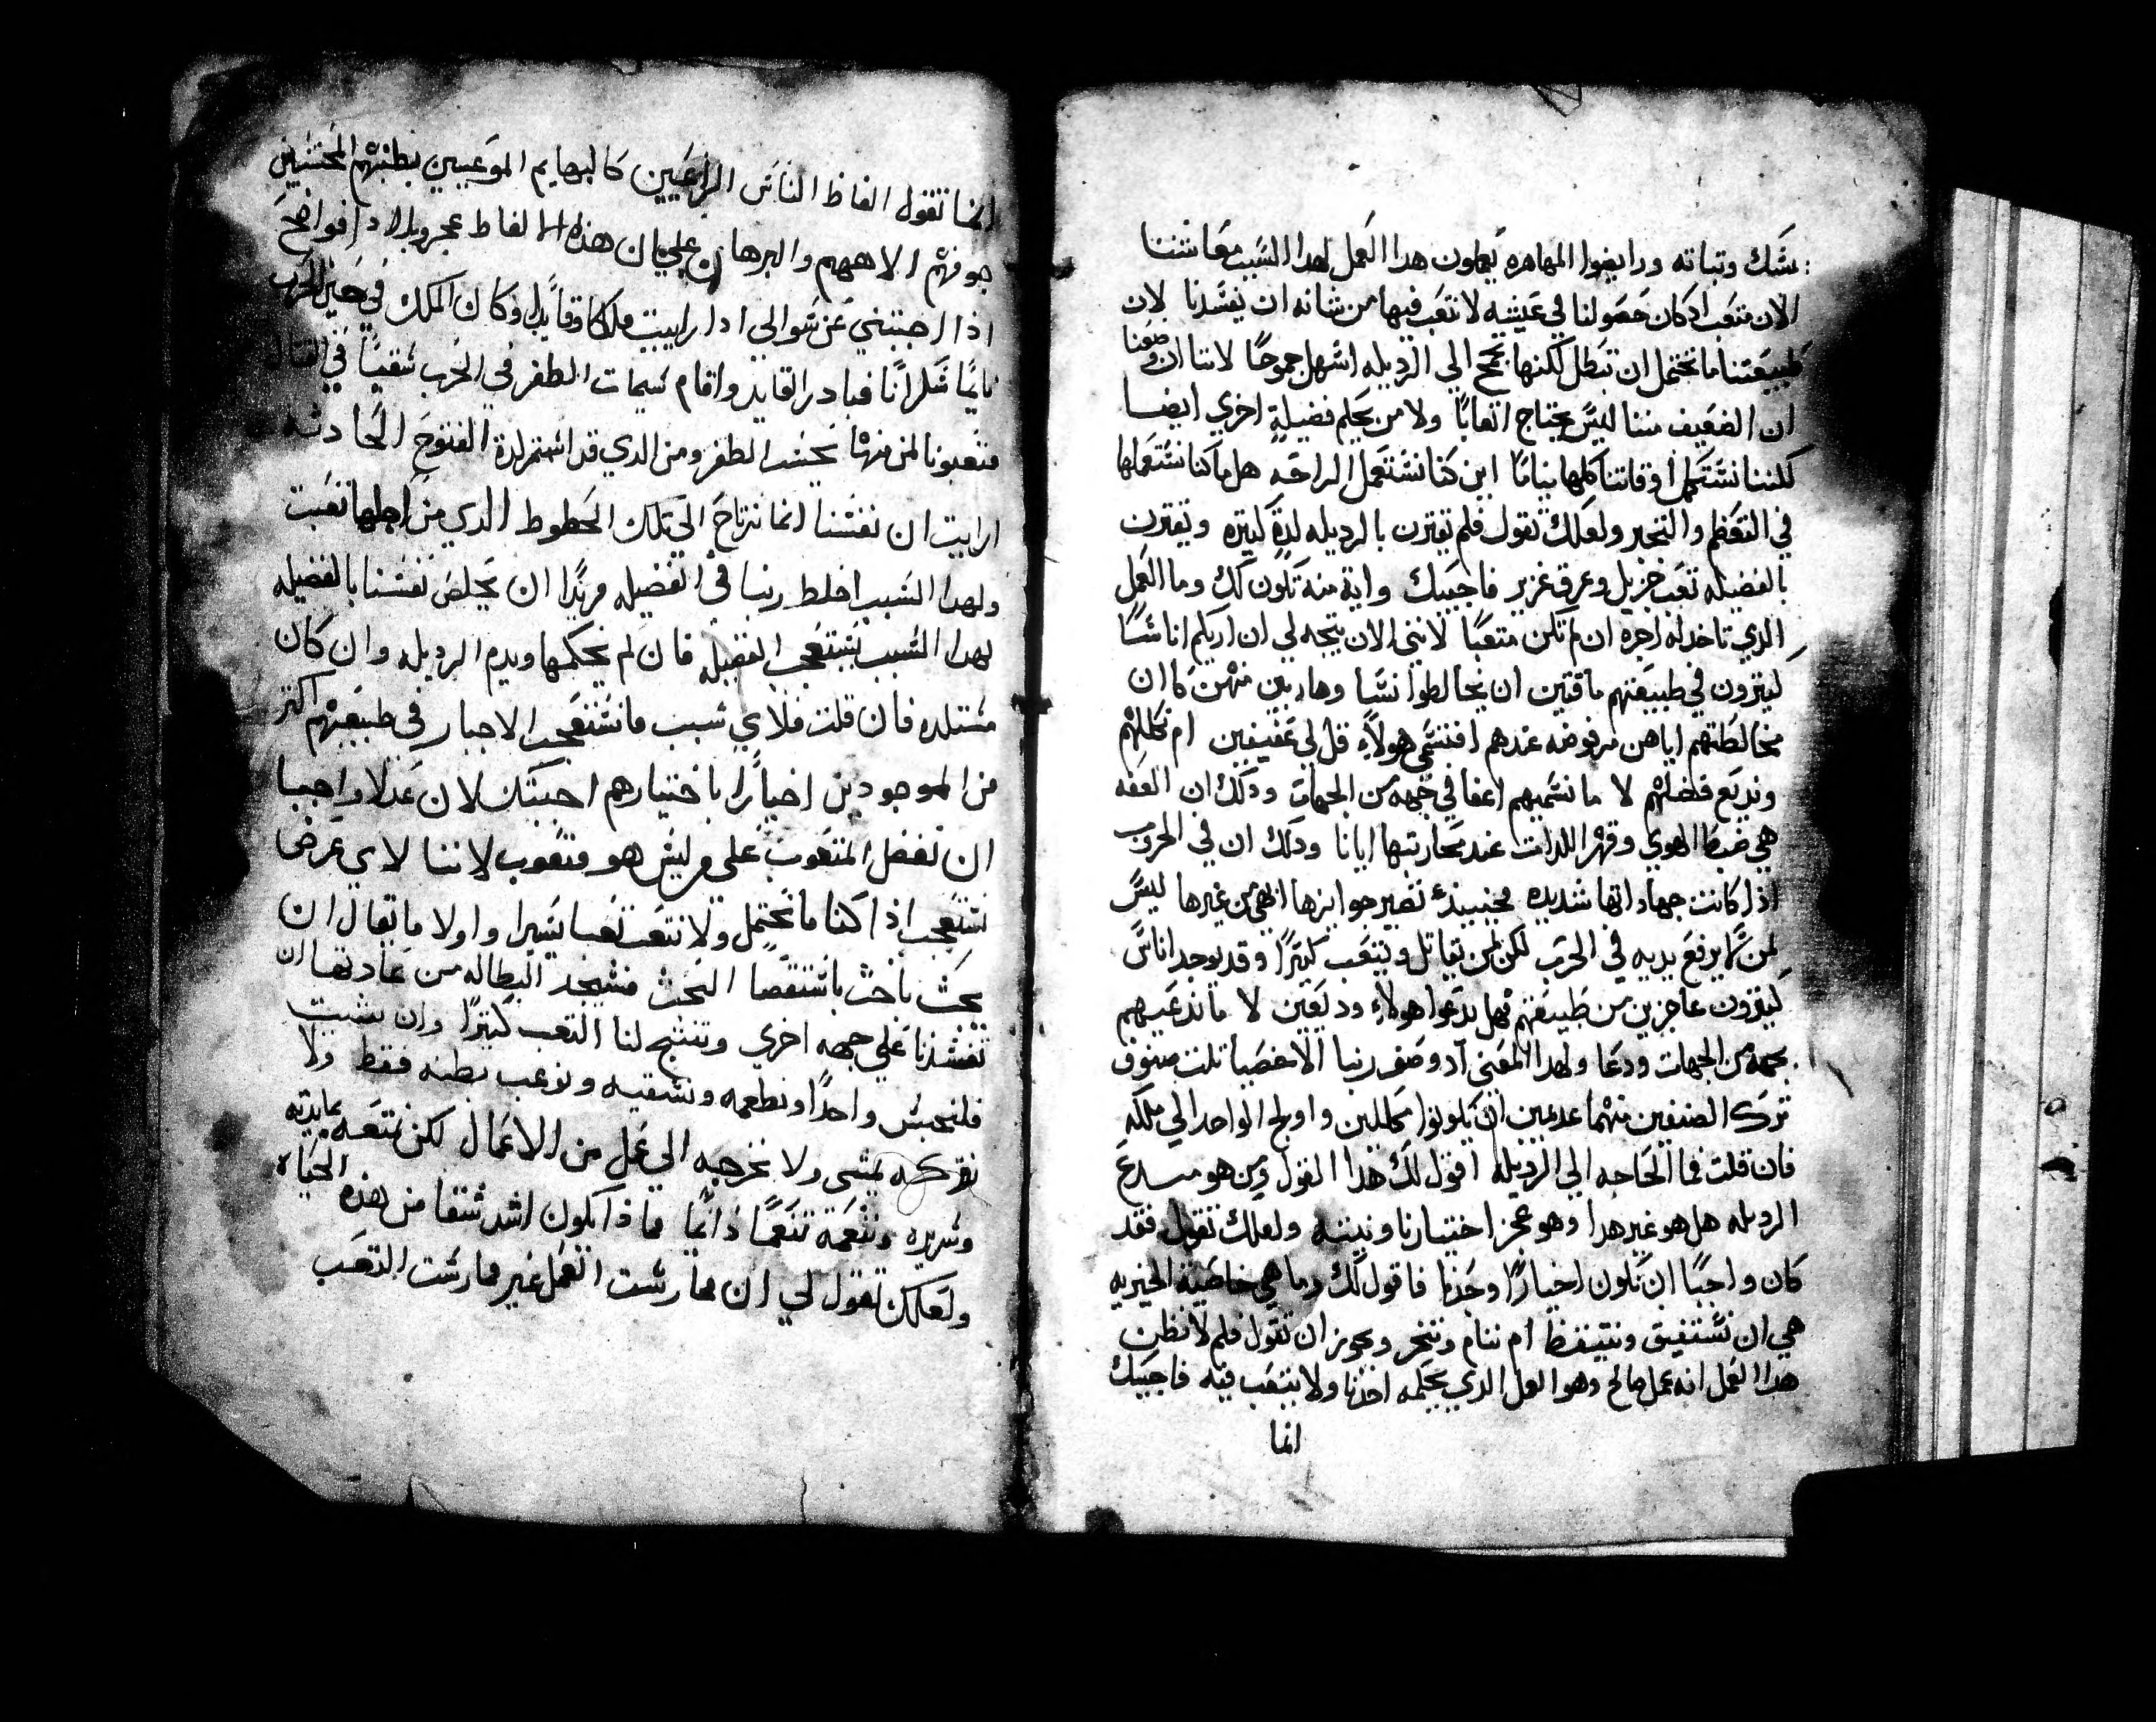 يمسك وتباته ورايضوا المهاره يعملون هدا العمل لهدا السبب معاشتنا
الان متعب اد كان حصولنا في عيشه لا تعب فيها من شانه ان يفسدنا لان
طبيعتنا ما تحتمل ان تبطل لكنها تجمح الي الرديله اسهل جموحًا لاننا ان وضعنا
ان الضعيف مننا ليس يحتاج اتعابًا ولا من يحكم فضيلةٍ اخري ايضا
لكننا نستكمل اوقاتنا كلها نيامًا اين كنا نستعمل الراحه هل ما كنا نستعملها
في التعظم والتجبر ولعلك تقول فلم تقترن بالرديله لدةٍ كتيره ويقترن
بالفضيله تعب جزيل وعرق غزير فاجيبك واية منه تكون لك وما العمل
الدي تاخد له اجره ان لم تكن متعبًا لانني الان يتجه لي ان اريكم اناسًا
كتيرون في طبيعتهم ماقتين ان يخالطوا نسا وهاربين منهن كان
مخالطتهم اياهن مرفوضه عندهم افنسمى هولاء قل لي عفيفين ام نكللهم
ونديع فضلهم لا ما نسميهم اعفا في جهه من الجهات ودلك ان العفه
هي ضبط الهوي وقهر اللدات عند محاربتها ايانا ودلك ان في الحروب
اذا كانت جهاداتها شديده فحينيدء تصير جوايزها ابهى من غيرها ليس
لمن ما يرفع يديه في الحرب لكن لمن يقاتل ويتعب كتيرًا وقد يوجد اناس
كتيرون عاجزين من طبيعتهم فهل ندعوا هولاء وديعين لا ما ندعيهم
بجهة من الجهات ودعا ولهدا المعني اد وصف ربنا الاخصيا تلت صنوف
ترك الصنفين منهما عدمين ان يكونوا مكللين واولج الواحد الي ملكه
فان قلت فما الحاجه الي الرديله اقول لك هدا القول ومن هو مبدع
الرديله هل هو غير هدا وهو عجز اختيارنا ونيتنه ولعلك تقول فقد
كان واجبًا ان نكون اخيارًا وحدنا فاقول لك وما هي خاصية الخيريه
هي ان نستفيق ونتيقظ ام ننام ونتخر ويجوز ان تقول فلم لا نظن
هدا العمل انه عمل صالح وهو العمل الدي يحكمه احدنا ولا يتعب فيه فاجيبك
انما
انما تقول الفاظ الناس الراعيين كالبهايم الموعبين بطنهم المحتسبين
جوفهم الاههم والبرهان علي ان هذه الالفاظ عجز وبلاده فواضح
اذا اجبتني عن سوالي ادا رايت ملكا وقايدا وكان الملك في حين الحرب
نايمًا سكرانًا فبادر القايد واقام سمات الظفر في الحرب شقيًا في القتال
متعبونا لمن منهما نحسب الظفر ومن الدي قد استمر لدة الفتوح الحادثه
ارايت ان نفسنا انما نرتاح الى تلك الحظوظ الدي من اجلها تعبت
ولهدا السبب اخلط ربنا في الفضيله مريدًا ان يخلص نفسنا بالفضيله
لهدا السبب نستعجب الفضيله فان لم نحكمها ويدم الرديله وان كان
مستلده فان قلت فلاي سبب ما نستعجب الاخيار في طبيعتهم اكتر
من الموجودين اخيارًا باختيارهم اجيبك لان عدلا واجبا
ان نفضل المتعوب على من ليس هو متعوب لاننا لاي عرض
نستعجب اذا كنا ما نحتمل ولا نتعب تعبا يسيرا واولا ما يقال ان
بحث باحث باستقصا البحث فسيجد البطاله من عادتها ان
تفسدنا على جهه اخري وتنتج لنا التعب كتيرًا وان شيت
فلنحبس واحدًا ونطعمه ونسقيه ونوعب بطنه فقط ولا
نتركه يمشى ولا نخرجه الي عمل من الاعمال لكن نمتعه بمايدته
وسريره وننعمه تنعمًا دائمًا فماذا يكون اشد شقا من هذه الحياه
ولعلك تقول لي ان ممارست العمل غير ممارست التعب